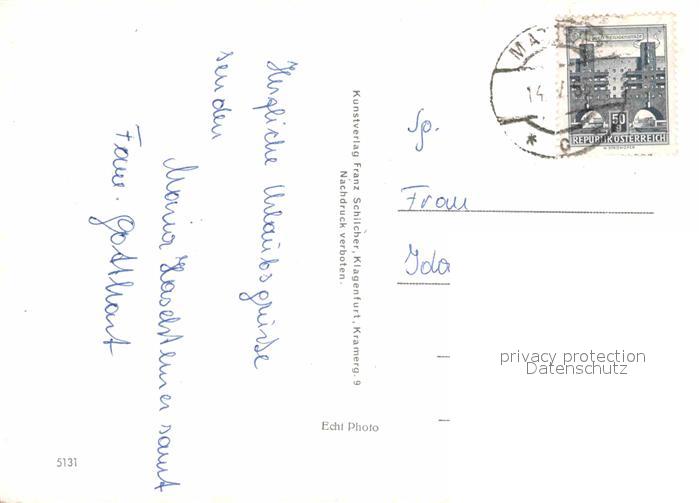 Herzliche Urlaubsgrüsse
senden
Maria Haselsteiner samt
Fam. Gotthart
Kunstverlag Franz Schilcher, Klagenfurt, Kramerg. 9
Nachdruck verboten.
Echt Photo
5131
Sp.
Frau
Ida
privacy protection
Datenschutz
50
g
REPUBLIK ÖSTERREICH
14.